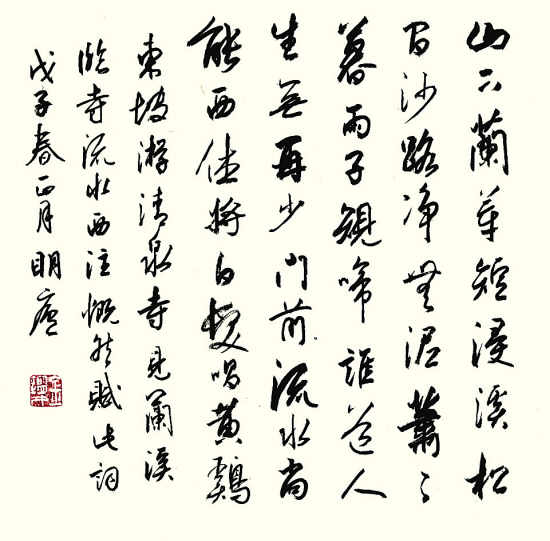 山下蘭芽短浸溪松
間沙路淨無泥蕭〻
暮雨子規啼誰道人
生無再少門前流水尚
能西休將白髮唱黃鷄
東坡游清泉寺見蘭溪
臨寺流水西注慨然賦此詞
戊子春正月明廬